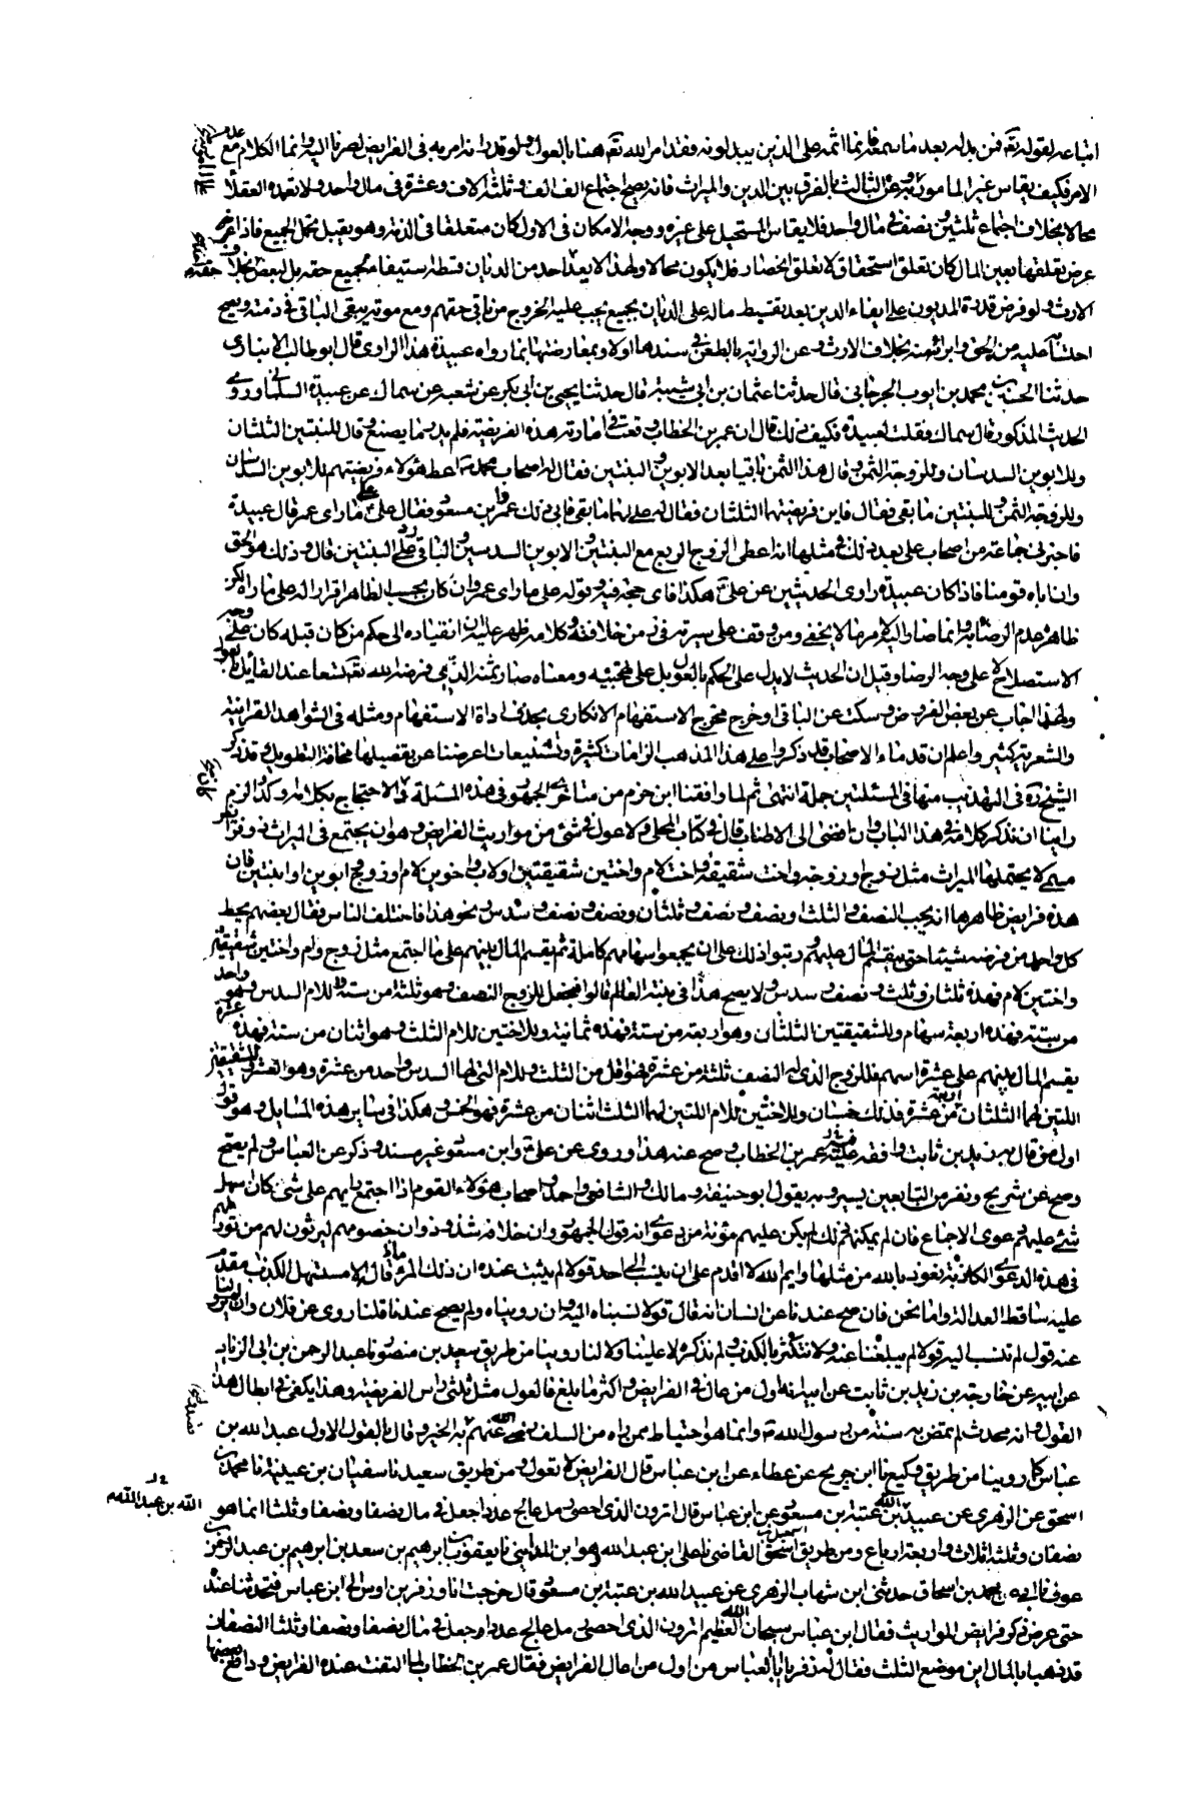 اتباعه لقوله تع فمن بدله بعد ما سمعه فانما اثمه على الذين يبدلونه فقد امر الله تع هنا بالعول ولو قدرانه امر به فى الفرايض لصرنا اليه وانما الكلام مع عدم
الامر فكيف يقاس غير المامور به وعن الثالث بالفرق بين الدين والميراث فانه يصح اجتماع الف الف وثلثة الاف وعشرة فى مال واحد ولا يعده العقلاء
محالا بخلاف اجتماع ثلثين ونصف فى مال واحد فلا يقاس المستحيل على غيره ووجه الامكان فى الاول كان متعلقا فى الذمة وهو يقبل تحمل الجميع فاذا
عرض تعلقها بعين المال كان تعلق استحقاق لا تعلق انحصار فلا يكون محالا ولهذا لا يعد احد من الديان قسطه استيفاء لجميع حقه بل البعض بخلاف
الارث ولو فرض قدرة المديون على ايفاء الدين بعد تقسيط ماله على الديان يجب عليه الخروج من باقى حقهم ومع موته يبقى الباقى فى ذمته ويصح
احتسابه عليه من الحق وابرائه منه بخلاف الارث وعن الرواية بالطعن فى سندها اولا وبمعارضتها بما رواه عبيدة هذا الراوى قال ابو طالب الانبارى
حدثنا الحسين بن محمد بن ايوب الجرجانى قال حدثنا عثمان بن ابى شيبة قال حدثنا يحيى بن ابى بكر عن شعبه عن سماك عن عبيدة السلمانى وروى
الحديث المذكور قال سماك فقلت لعبيدة وكيف ذلك قال ان عمر بن الخطاب وقعت فى امارته هذه الفريضة فلم يدر ما يصنع وقال للبنتين الثلثان
وللابوين السدسان وللزوجة الثمن وقال هذا الثمن باقيا بعد الابوين والبنتين فقال له اصحاب محمد ص اعط هؤلاء فريضتهم للابوين السدسان
وللزوجة الثمن وللبنتين ما بقى فقال فاين فريضتهما الثلثان فقال له على لهما ما بقى فابى ذلك عمر وابن مسعود فقال على ع على ما راى عمر قال عبيدة
فاخبرنى جماعة من اصحاب على بعد ذلك فى مثلها انه اعطى الزوج الربع مع البنتين والابوين السدسين والباقى رد على البنتين قال وذلك هو الحق
وان اباه قومنا فاذا كان عبيدة راوى الحديثين عن على ع هكذا فاى حجة فيه وقوله على ما راى عمر وان كان بحسب الظاهر اقرار له على ما راه لكن
ظاهره عدم الرضا به وانما صار اليه لامر ما لا يخفى ومن وقف على سيرته فى زمن خلافته وكلامه ظهر عليه ان انقياده الى حكم من كان قبله كان على وجه
الاستصلاح لا على وجه الرضا وقيل ان الحديث لا يدل على الحكم بالعول بل على تهجينه ومعناه صار ثمنها الذى فرضه الله تع تسعا عند القايل بالعول
ولهذا اجاب عن بعض الفروض وسكت عن الباقى او خرج مخرج الاستفهام الانكارى بحذف اداة الاستفهام ومثله فى الشواهد القرانية
والشعرية كثير واعلم ان قدماء الاصحاب قد ذكروا على هذا المذهب الزامات كثيرة وتشنيعات اعرضنا عن تفصيلها مخافة التطويل وقد ذكر
الشيخ ره فى التهذيب منها فى المسئلتين جملة انتهى ثم لما وافقنا ابن حزم من متاخرى الجمهور فى هذه المسئلة والاحتجاج بكلامه وكد الزم
راينا ان نذكر كلامه فى هذا الباب وان افضى الى الاطناب قال فى كتاب المحلى ولا عول فى شئ من مواريث الفرايض وهو ان يجتمع فى الميراث ذوو فرايض
مسماة لا يحتملها الميراث مثل زوج او زوجة واخت شقيقة واخت لام واختين شقيقتين او لاب واخوين لام او زوج وابوين او ابنتين فان
هذه فرايض ظاهرها انه يجب النصف والثلث او نصف ونصف وثلثان ونصف ونصف وسدس ونحو هذا فاختلف الناس فقال بعضهم يحط
كل واحد من فرضه شيئا حتى ينقسم المال عليهم ورتبوا ذلك على ان يجمعوا سهامهم كاملة ثم يقسم المال بينهم على ما اجتمع مثل زوج وام واختين شقيقتين
واختين لام فهذه ثلثان وثلث ونصف وسدس ولا يصح هذا فى بنية العالم قالوا فنجعل للزوج النصف وهو ثلثة من ستة وللام السدس وهو واحد
من ستة فهذه اربعة سهام وللشقيقتين الثلثان وهو اربعة من ستة فهذه ثمانية وللاختين للام الثلث وهو اثنان من ستة فهذه عشرة
يقسم المال بينهم على عشرة اسهم فللزوج الذى له النصف ثلثة من عشرة فهو اقل من الثلث وللام التى لها السدس واحد من عشرة وهو العشر وللشقيقتين
اللتين لهما الثلثان اربعة من عشرة فذلك خمسان وللاختين للام اللتين لهما الثلث اثنان من عشرة فهو الخمس وهكذا فى سائر هذه المسايل وهو قول
اول من قال به زيد بن ثابت ووافقه عليه عمر بن الخطاب وصح عنه هذا وروى عن على ع وابن مسعود غير مسند وذكر عن العباس ولم يصح
وصح عن شريح ونفر من التابعين يسير وبه يقول ابو حنيفة ومالك والشافعى واحمد واصحاب هؤلاء القوم اذا اجتمع رايهم على شئ كان اسهل
شئ عليهم دعوى الاجماع فان لم يمكنهم ذلك لم يكن عليهم مؤنة من دعوى انه قول الجمهور وان خلافه شذوذ وان خصومهم ليرثون لهم من تورطهم
فى هذه الدعوى الكاذبة نعوذ بالله من مثلها وايم الله لا اقدم على ان ينسب الى احد قولا لم يثبت عنده ان ذلك المرء قاله الا مستسهل الكذب مقدم
عليه ساقط العدالة واما نحن فان صح عندنا عن انسان انه قال قولا نسبناه اليه وان رويناه ولم يصح عندنا قلنا روى عن فلان وان لم يرو لنا
عنه قول لم ننسب اليه قولا لم يبلغنا عنه ولا نتكثر بالكذب ولم نذكره لا علينا ولا لنا روينا من طريق سعيد بن منصور نا عبد الرحمن بن ابى الزناد
عن ابيه عن خارجة بن زيد بن ثابت عن ابيه انه اول من عال فى الفرايض واكثر ما بلغ فالعول مثل ثلثى راس الفريضة وهذا يكفى فى ابطال هذا
القول وانه محدث لم تمض به سنة من رسول الله ص وانما هو احتياط ممن راه من السلف رضى الله عنهم به الخير وقال بالقول الاول عبد الله بن
عباس كما روينا من طريق وكيع نا ابن جريح عن عطاء عن ابن عباس قال الفرايض لا تعول ومن طريق سعيد نا سفيان بن عيينة نا محمد بن
اسحق عن الزهرى عن عبيد الله بن عتبة بن مسعود عن ابن عباس قال اترون الذى احصى رمل عالج عددا جعل فى مال نصفا ونصفا وثلثا انما هو
الله بن عبد الله
نصفان وثلثة اثلاث واربعة ارباع ومن طريق اسمعيل بن اسحق القاضى نا على بن عبد الله هو ابن المدينى نا يعقوب بن ابرهيم بن سعد بن ابرهيم بن عبد الرحمن بن
عوف نا ابى عن محمد بن اسحاق حدثنى ابن شهاب الزهرى عن عبيد الله بن عتبة بن مسعود قال خرجت انا وزفر بن اوس الى ابن عباس فتحدثنا عنده
حتى عرض ذكر فرايض المواريث فقال ابن عباس سبحان الله العظيم اترون الذى احصى رمل عالج عددا جعل فى مال نصفا ونصفا وثلثا النصفان
قد ذهبا بالمال اين موضع الثلث فقال له زفر يا ابا العباس من اول من اعال الفرايض فقال عمر بن الخطاب لما التفت عنده الفرايض ودافع بعضها